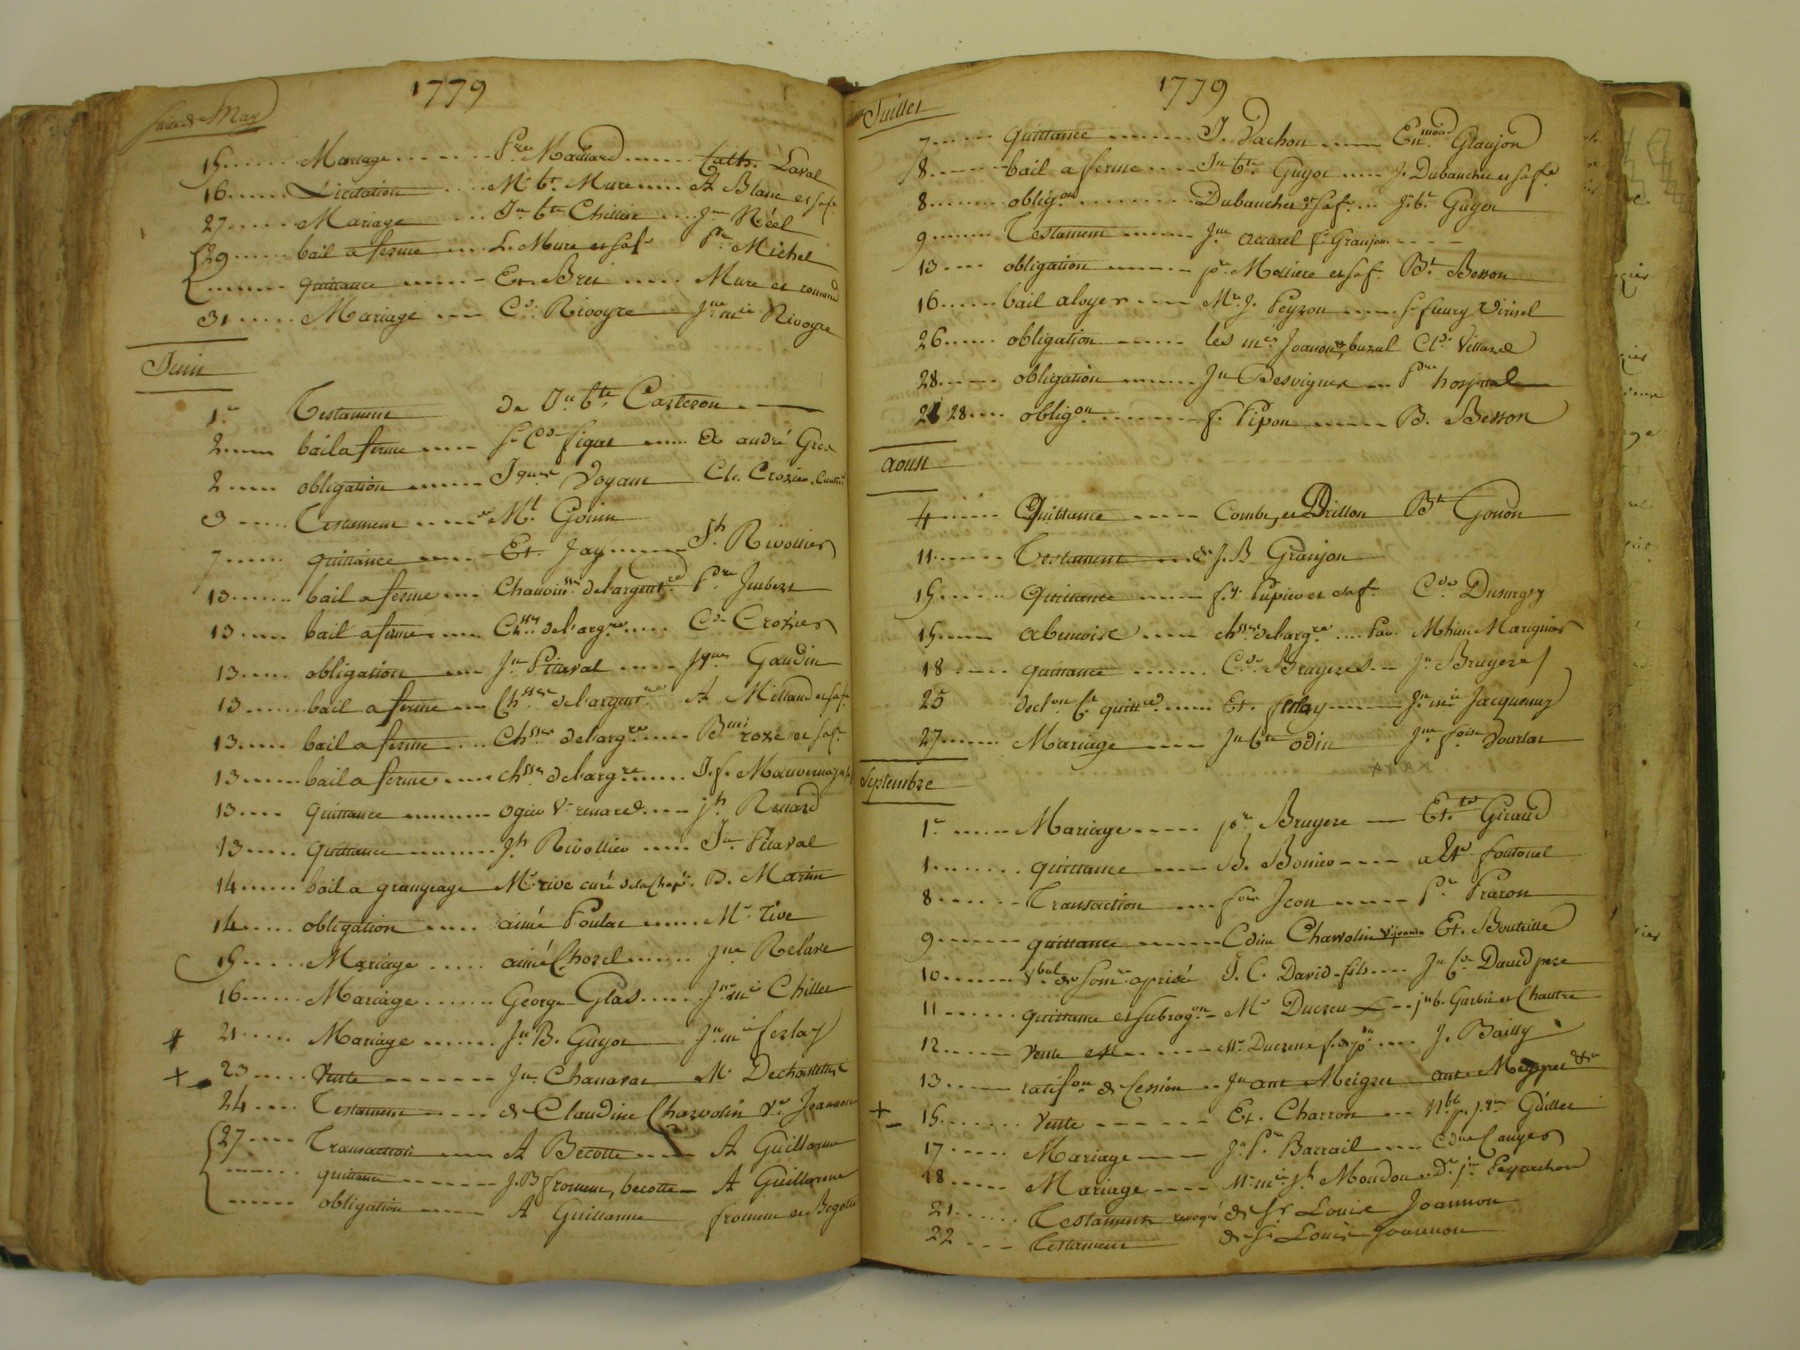 1779
Suitte de May
15 Mariage Pre Massard Cath. Laval
16 Licitation Mr bt. Mure A Blanc et sa f.e
27 Mariage Jn bte Chillier Jne Réel
29 bail a ferme L. Mure et sa fe Pre Michel
quittance Et. Brei Mure et
31 Mariage Cd. Rivoyre Jne mie Rivoyre
Juin
1er Testament de Jn bte Carteron
2 bail a ferme Sr Cde figat a andré Gros
2 obligation Jques Voyant Cl. Crozier
3 Testament de Mt Gonin
7 quittance Et. Jay Jh Rivollier
13 bail a ferme Chanoinsses de l'argentre Pre Imbert
13 bail a ferme Chsses de l'argre Cd. Crozier
13 obligation Jn Pitaval Jques Gaudin
13 bail a ferme Chsses de l'argentre A Millaud et sa fe
13 bail a ferme Chsses de l'argre Bmi roze et sa fe
13 bail a ferme chsses de l'argre J. f.
13 quittance ogier Ve renard jh Renard
13 quittance Jh Rivollier Jn Pitaval
14 bail a grangeage Mr rive curé de la B. Martin
14 obligation aimé Poulat Mr rive
15 Mariage aimé Chorel Jne Relave
16 Mariage George Glas Jne mie Chillet
21 Mariage Jn B. Guyot Jne mie ferlay
+ 23 Vente Jn Chanavat Mr
24 Testament de Claudine Charvolin Ve Joannon
27 Transaction A Becotte A Guillarme
quittance J. B froment, becotte A Guillarme
obligation A Guillarme froment et Begotte
1779
Juillet
7 quittance J. Vachon Enmond Granjon
8 bail a ferme Jn bte Guyot J. Dubanchet et sa fe
8 obligon Dubanchet et sa fe Jn bt Guyot
9 Testament Jne accarel fe Granjon
13 obligation pre Moliere et sa fe Bt Besson
16 bail a loyer Mr J. Peyron Sr fleury Virisel
26 obligation les mes Joanon et burel Clde Villard
28 obligation Jn Desvignes Pre hospital
28 obligon f. Pipon B. Besson
aoust
4 Quittance Combe, et Drillon Bt Gonon
11 Testament de J. B Granjon
15 Quittance ft. Pupier et sa f. Cde Dusurgey
15 abenevise chsses de l'argre Mathieu Marignier
18 quittance Cde Bruyeres Jn Bruyere
25 declon et quittce Et. ferlay Jne mie Jacquemey
27 Mariage Jn bte odin Jne foise Vourlat
Septembre
1er Mariage pre Bruyere Ette Giraud
1 quittance B. Bonier a Ete fontenel
8 Transaction foise Jean Pre Praron
9 quittance Cdine Charvolin Et. Bouteille
10 Vbal de somon aprisé J. C. David fils Jn Cde David pere
11 quittance et subrogon Mr Ducreux jn b. Garbit et Chautre
12 Vente Mr Ducreux J. Bailly
13 ratifon de Cession Jn ant Meigret ant Meigret
+ 15 Vente Et. Charron Nble p. pre Guillet
17 Mariage Jn Pre Barrail Cdine Canyer
18 Mariage Mr mie jh Moudon Dle jne Peyrachon
21 Testament revoqué de Sr Louis Joannon
22 Testament de Sr Louis Joannon